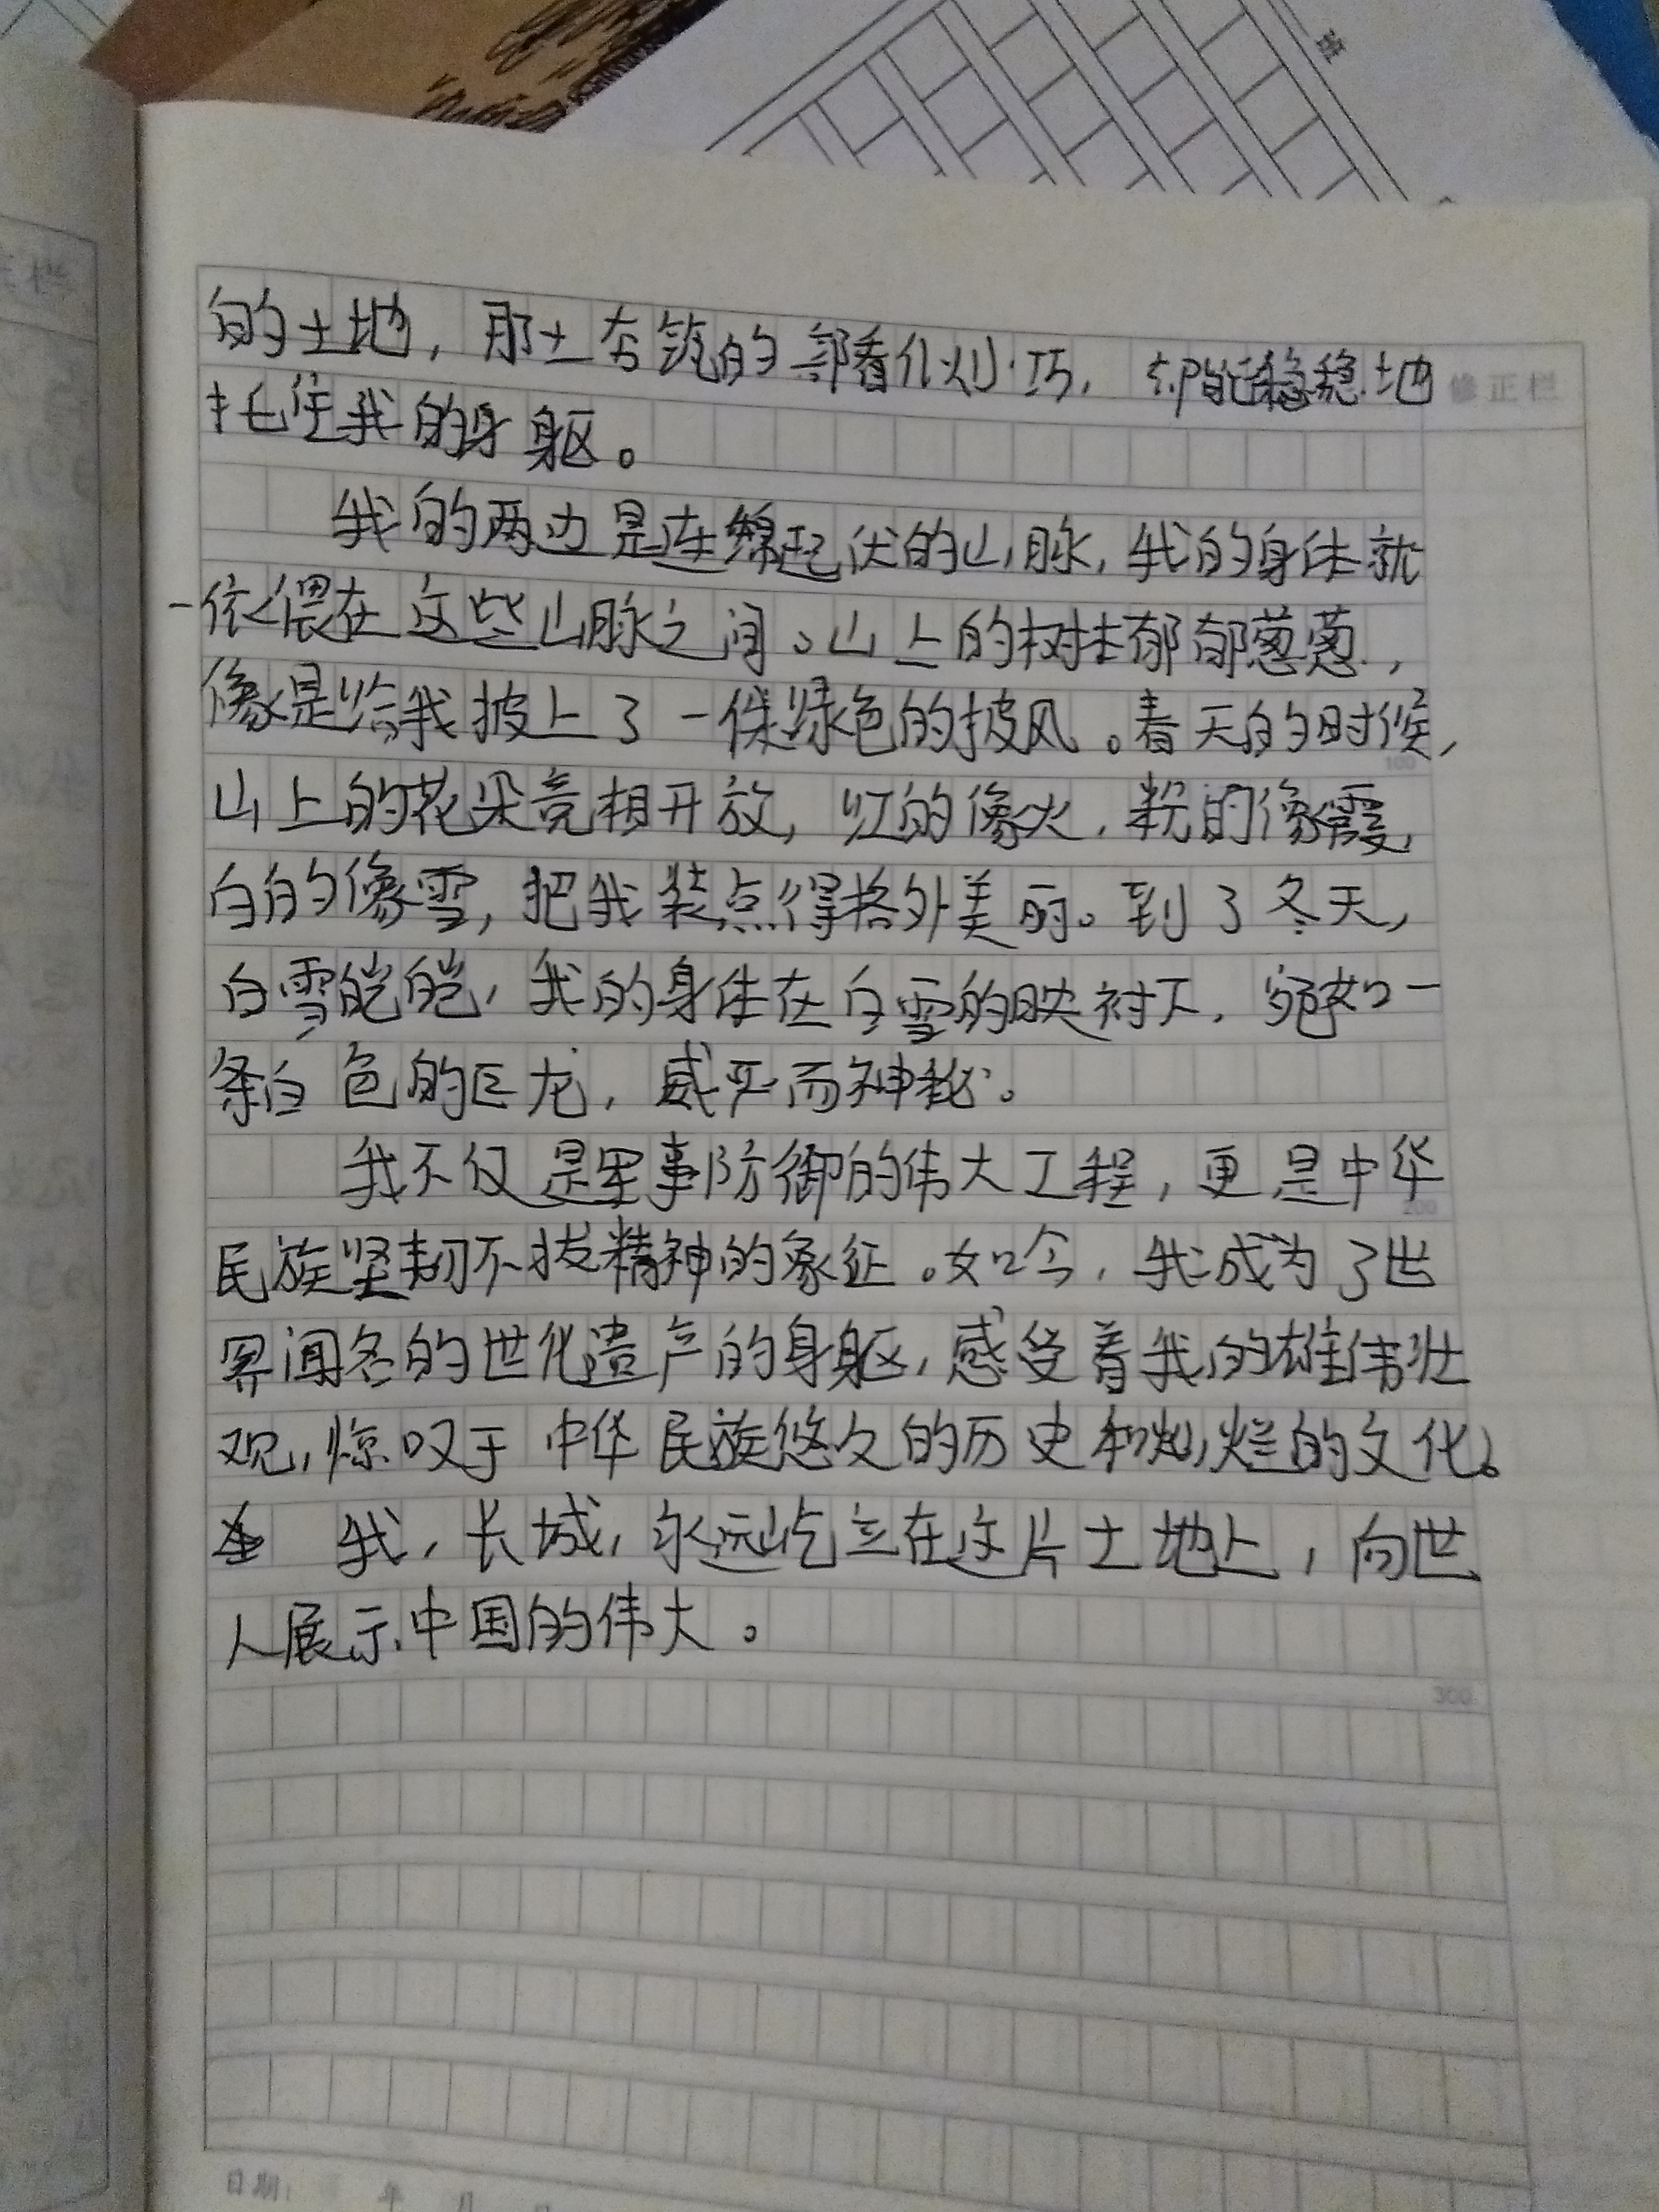 班
的土地，那土夯筑的部看似灵巧，却能稳稳地
修正栏
托住我的身躯。
我的两边是连绵起伏的山脉，我的身体就
依偎在这些山脉之间。山上的树林郁郁葱葱，
像是给我披上了一件绿色的披风。春天的时候，
100
山上的花朵竞相开放，红的像火，粉的像霞，
白的像雪，把我装点得格外美丽。到了冬天，
白雪皑皑，我的身体在白雪的映衬下，宛如一
条白色的巨龙，威严而神秘。
我不仅是军事防御的伟大工程，更是中华
200
民族坚韧不拔精神的象征。如今，我成为了世
界闻名的世化遗产的身躯，感受着我的雄伟壮
观，惊叹于中华民族悠久的历史和灿烂的文化。
我，长城，永远屹立在这片土地上，向世
人展示中国的伟大。
300
日期： 年 月 日